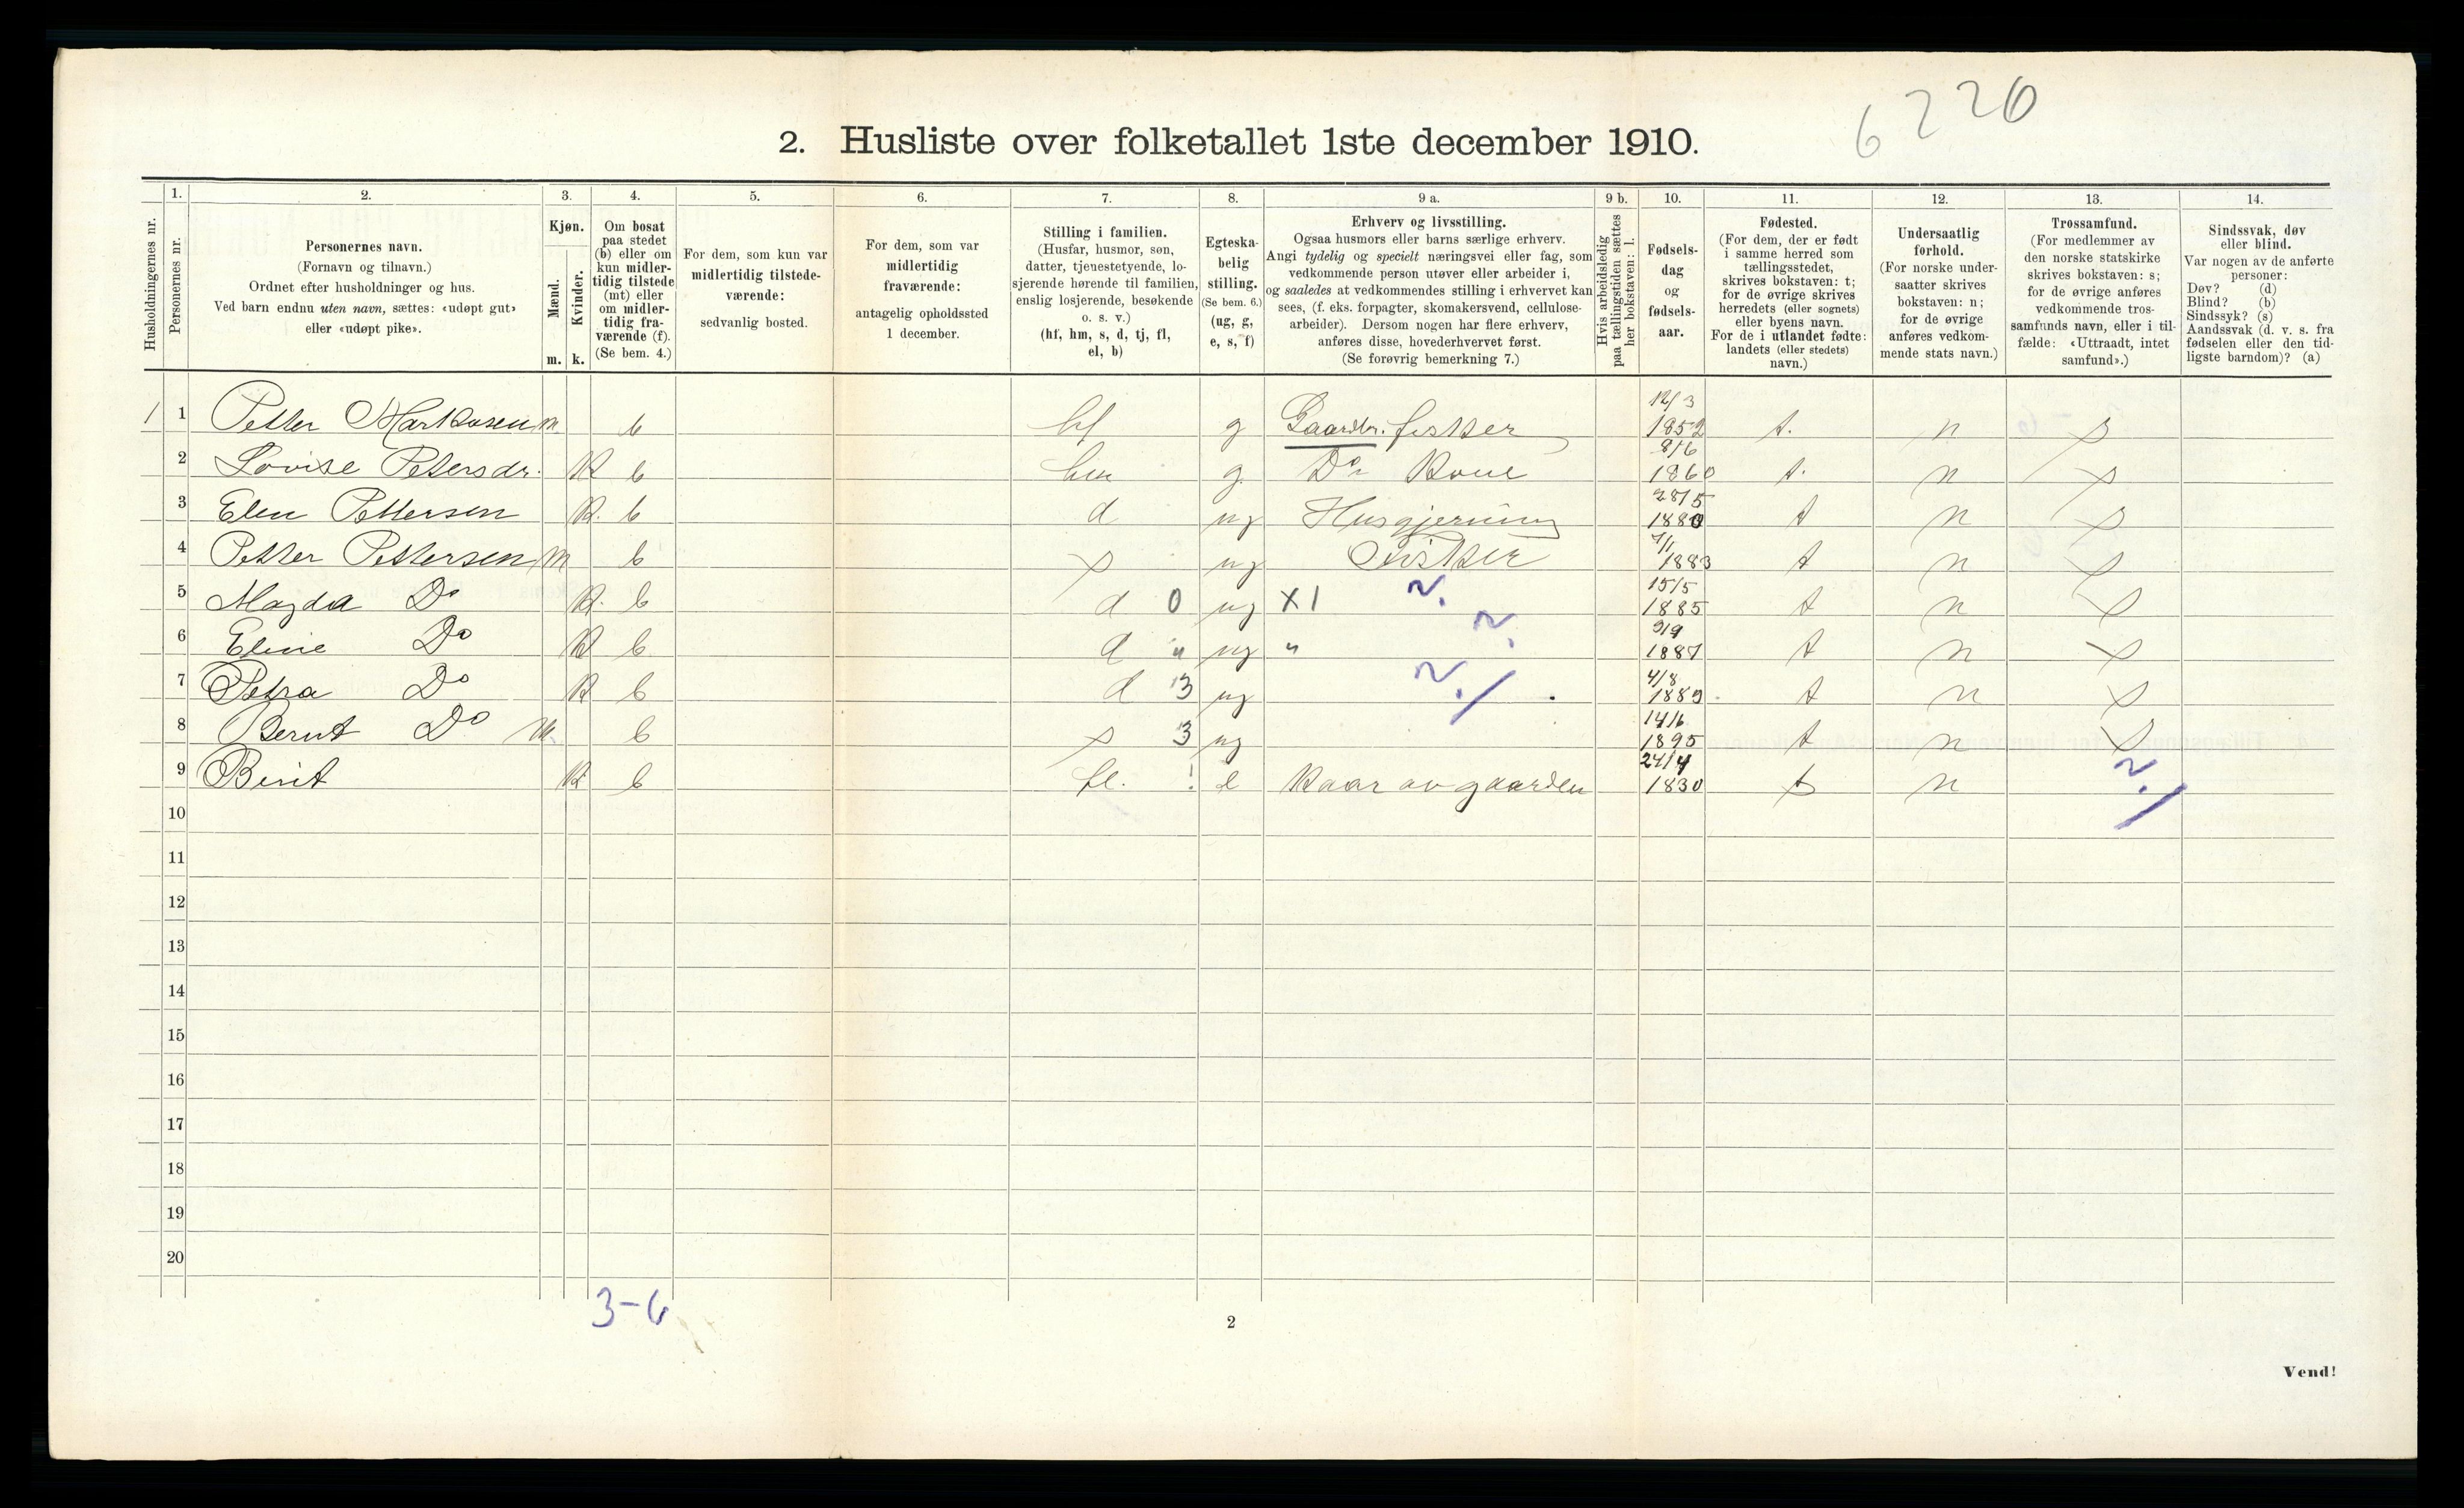 6220
2. Husliste over folketallet 1ste december 1910.
Husholdningernes nr.
1. Personernes nr.
2. Personernes navn. (Fornavn og tilnavn.) Ordnet efter husholdninger og hus. Ved barn endnu uten navn, sættes: «udøpt gut» eller «udøpt pike».
3. Kjøn. Mænd. m. Kvinder. k.
4. Om bosat paa stedet (b) eller om kun midlertidig tilstede (mt) eller om midlertidig fraværende (f). (Se bem. 4.)
5. For dem, som kun var midlertidig tilstedeværende: sedvanlig bosted.
6. For dem, som var midlertidig fraværende: antagelig opholdssted 1 december.
7. Stilling i familien. (Husfar, husmor, søn, datter, tjenestetyende, losjerende hørende til familien, enslig losjerende, besøkende o. s. v.) (hf, hm, s, d, tj, fl, el, b)
8. Egteskabelig stilling. (Se bem. 6.) (ug, g, e, s, f)
9 a. Erhverv og livsstilling. Ogsaa husmors eller barns særlige erhverv. Angi tydelig og specielt næringsvei eller fag, som vedkommende person utøver eller arbeider i, og saaledes at vedkommendes stilling i erhvervet kan sees, (f. eks. forpagter, skomakersvend, cellulosearbeider). Dersom nogen har flere erhverv, anføres disse, hovederhvervet først. (Se forøvrig bemerkning 7.)
9 b. Hvis arbeidsledig paa tællingstiden sættes her bokstaven: l.
10. Fødselsdag og fødselsaar.
11. Fødested. (For dem, der er født i samme herred som tællingsstedet, skrives bokstaven: t; for de øvrige skrives herredets (eller sognets) eller byens navn. For de i utlandet fødte: landets (eller stedets) navn.)
12. Undersaatlig forhold. (For norske undersaatter skrives bokstaven: n; for de øvrige anføres vedkommende stats navn.)
13. Trossamfund. (For medlemmer av den norske statskirke skrives bokstaven: s; for de øvrige anføres vedkommende trossamfunds navn, eller i tilfælde: «Uttraadt, intet samfund».)
14. Sindssvak, døv eller blind. Var nogen av de anførte personer: Døv? (d) Blind? (b) Sindssyk? (s) Aandssvak (d. v. s. fra fødselen eller den tidligste barndom)? (a)
1 1 Petter Markusen m b hf g Gaardbr. fisker 12/3 1852 t. n s
2 Lovise Petersdr. k b hm g. Do Kone 8/6 1860 t. n s
3 Elen Pettersen k. b d ug Husgjerning 28/5 1880 t n s
4 Petter Pettersen m b s ug Fisker 7/1 1883 t n s
5 Magda Do k. b d 0 ug X1 15/5 1885 t n s
6 Eline Do k b d " ug " 9/9 1887 t n s
7 Petra Do k b d 3 ug 4/8 1889 t n s
8 Bernt Do m. b s 3 ug 14/6 1895 t n s
9 Berit k b fl. ! e Kaar av gaarden 24/4 1830 t n
10
11
12
13
14
15
16
17
18
19
20
3-6
2
Vend!